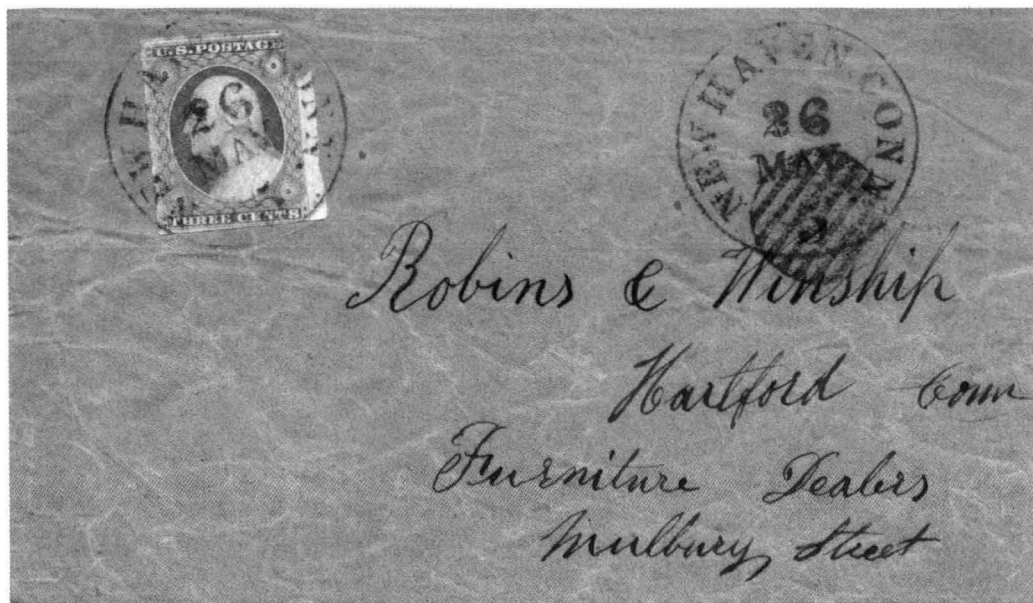 U.S. POSTAGE
26
MAY
THREE CENTS
NEW HAVEN CON
26
MAY
3
Robins & Winship
Hartford Conn
Furniture Dealers
Mulbury Street